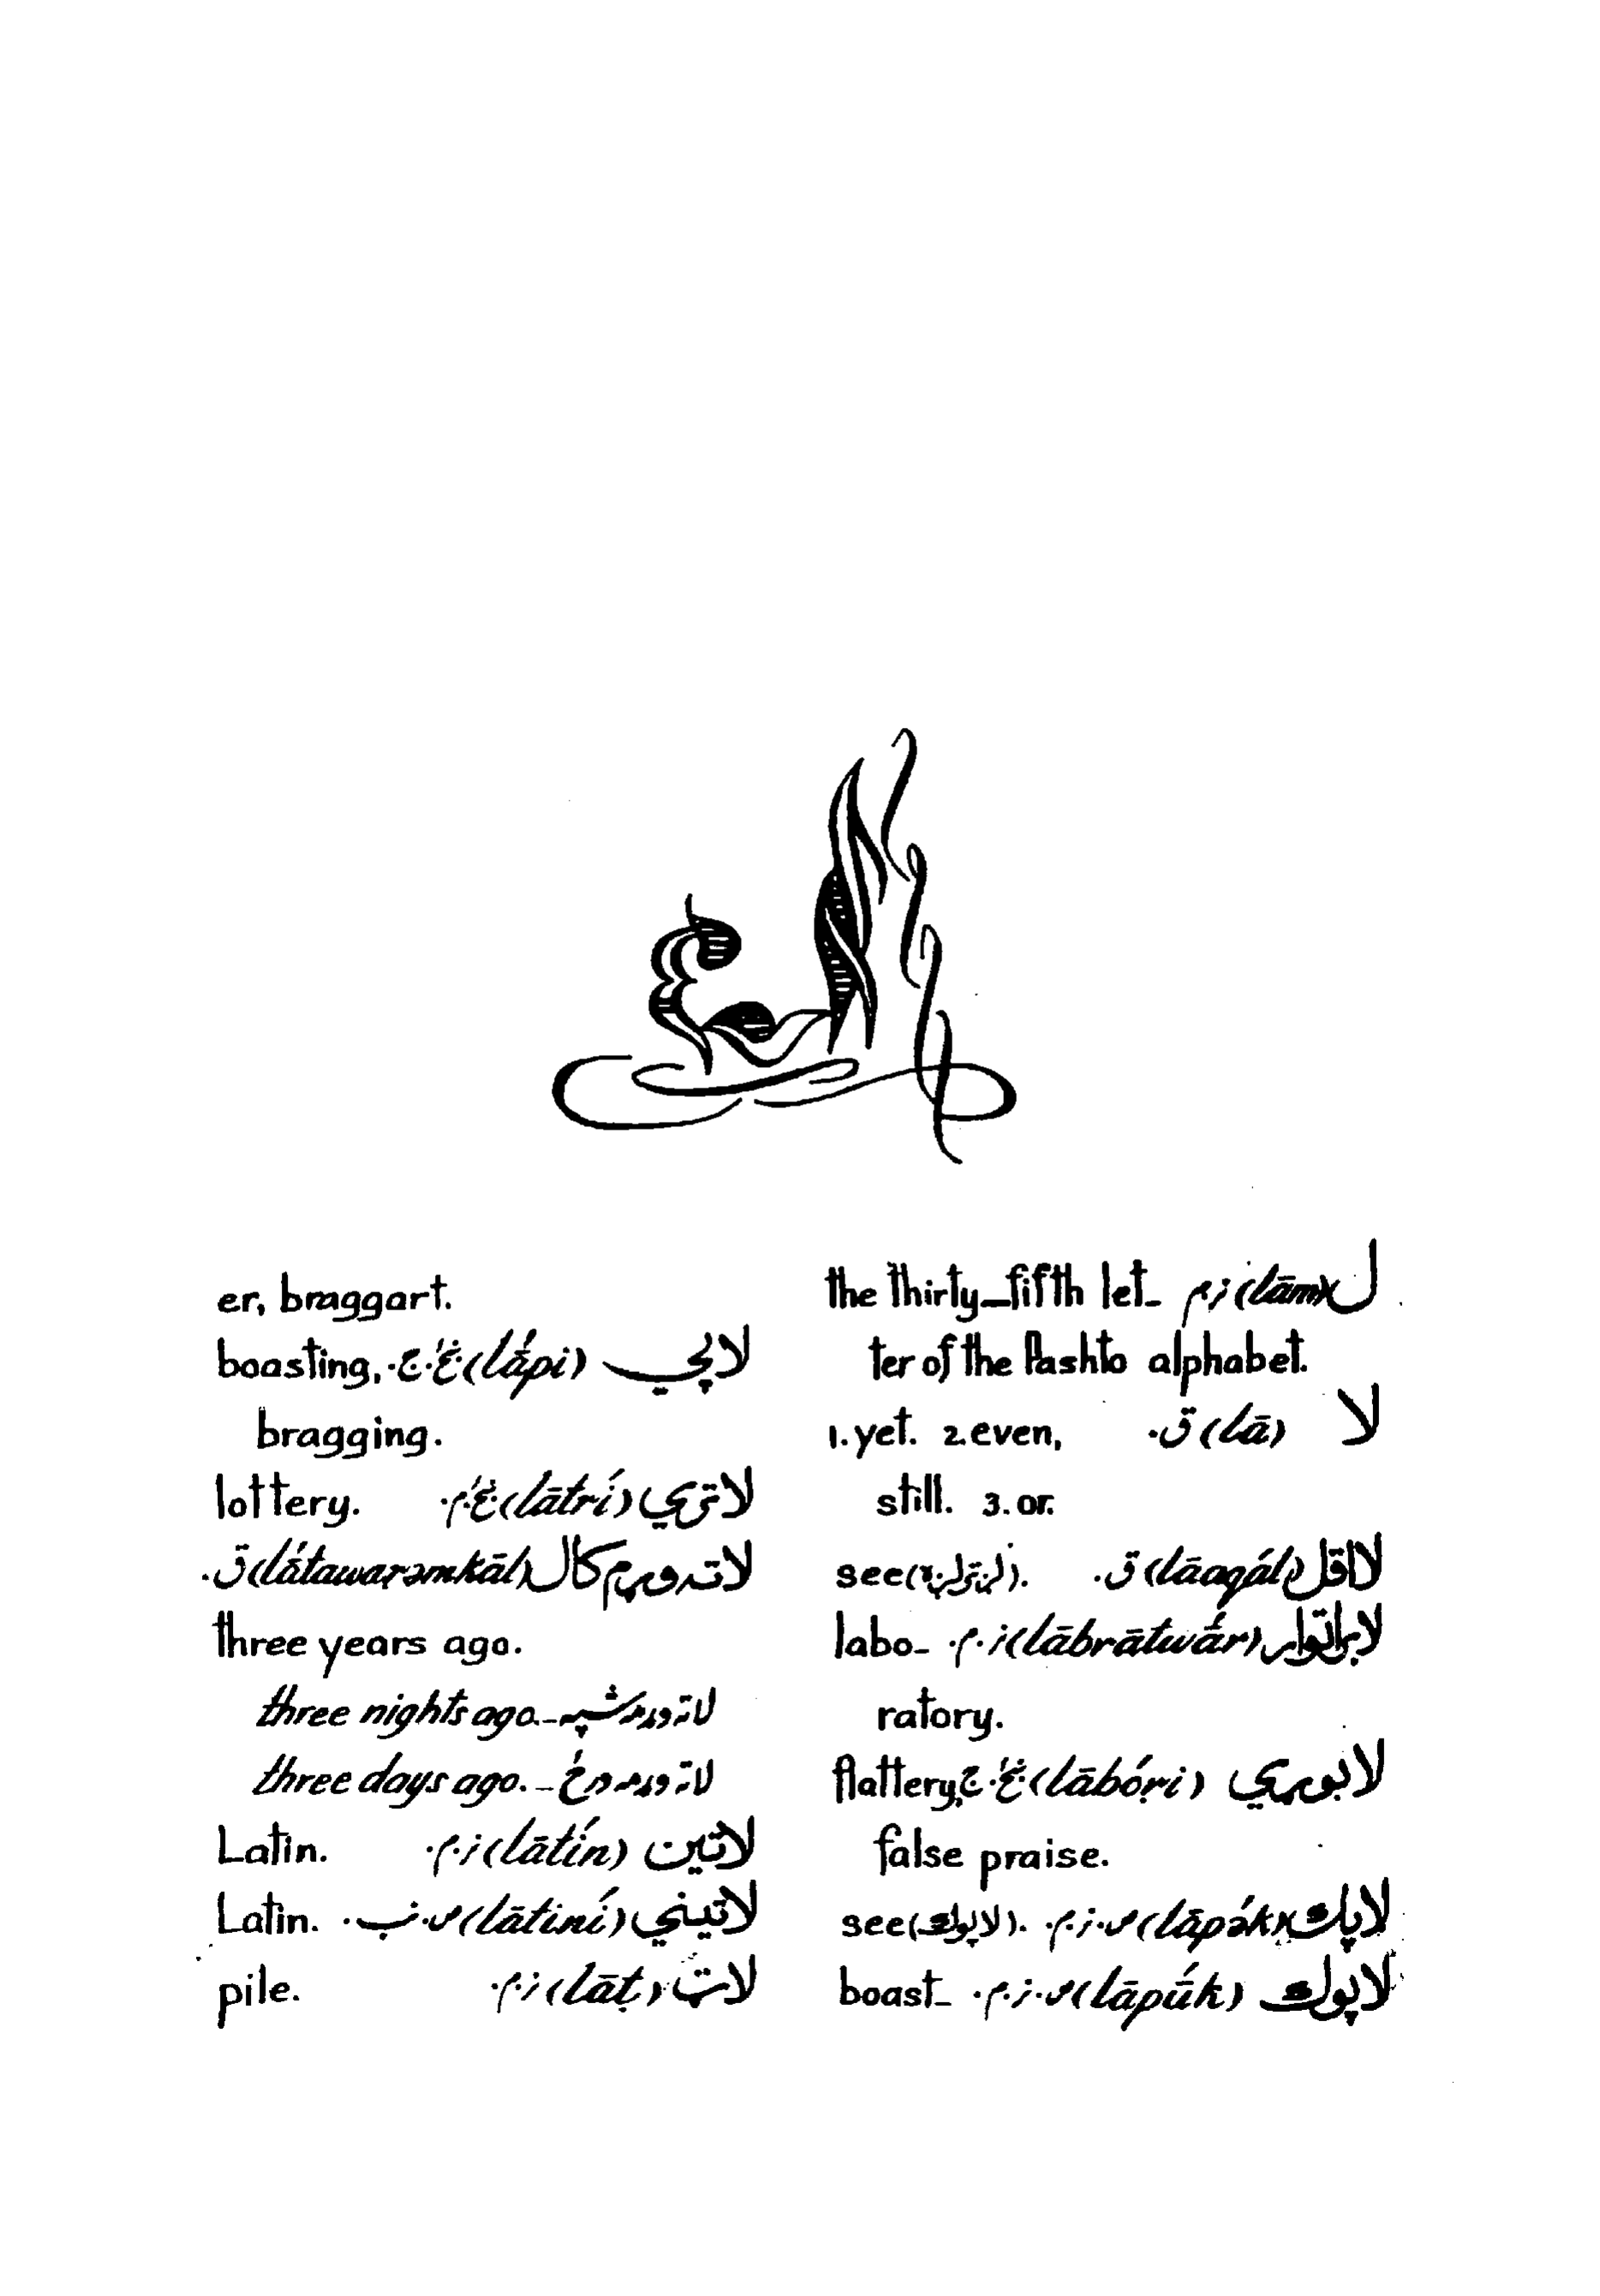 ل (lām) ز.م the thirty-fifth let-
ter of the Pashto alphabet.
لا (lā) ق. 1. yet. 2. even,
still. 3. or.
لااقل (lāaqál) ق. see ( ).
لابراتوار (lābrātwā́r) ز.م. labo-
ratory.
لابوړي (lābóṛi) ج.ښځ. flattery,
false praise.
لاپك (lāpə́k) ص.ز.م. see (لاپوك).
لاپوك (lāpū́k) ص.ز.م. boast-
er, braggart.
لاپي (lā́pi) ښځ.ج. boasting,
bragging.
لاتري (lātrí) ښځ.م. lottery.
لاته ورم كال (lā́tawarəmkāl) ق.
three years ago.
لاته ورمه شپه - three nights ago.
لاته ورمه ورځ - three days ago.
لاتين (lātín) ز.م. Latin.
لاتيني (lātiní) ص.نب. Latin.
لاټ (lāṭ) ز.م. pile.